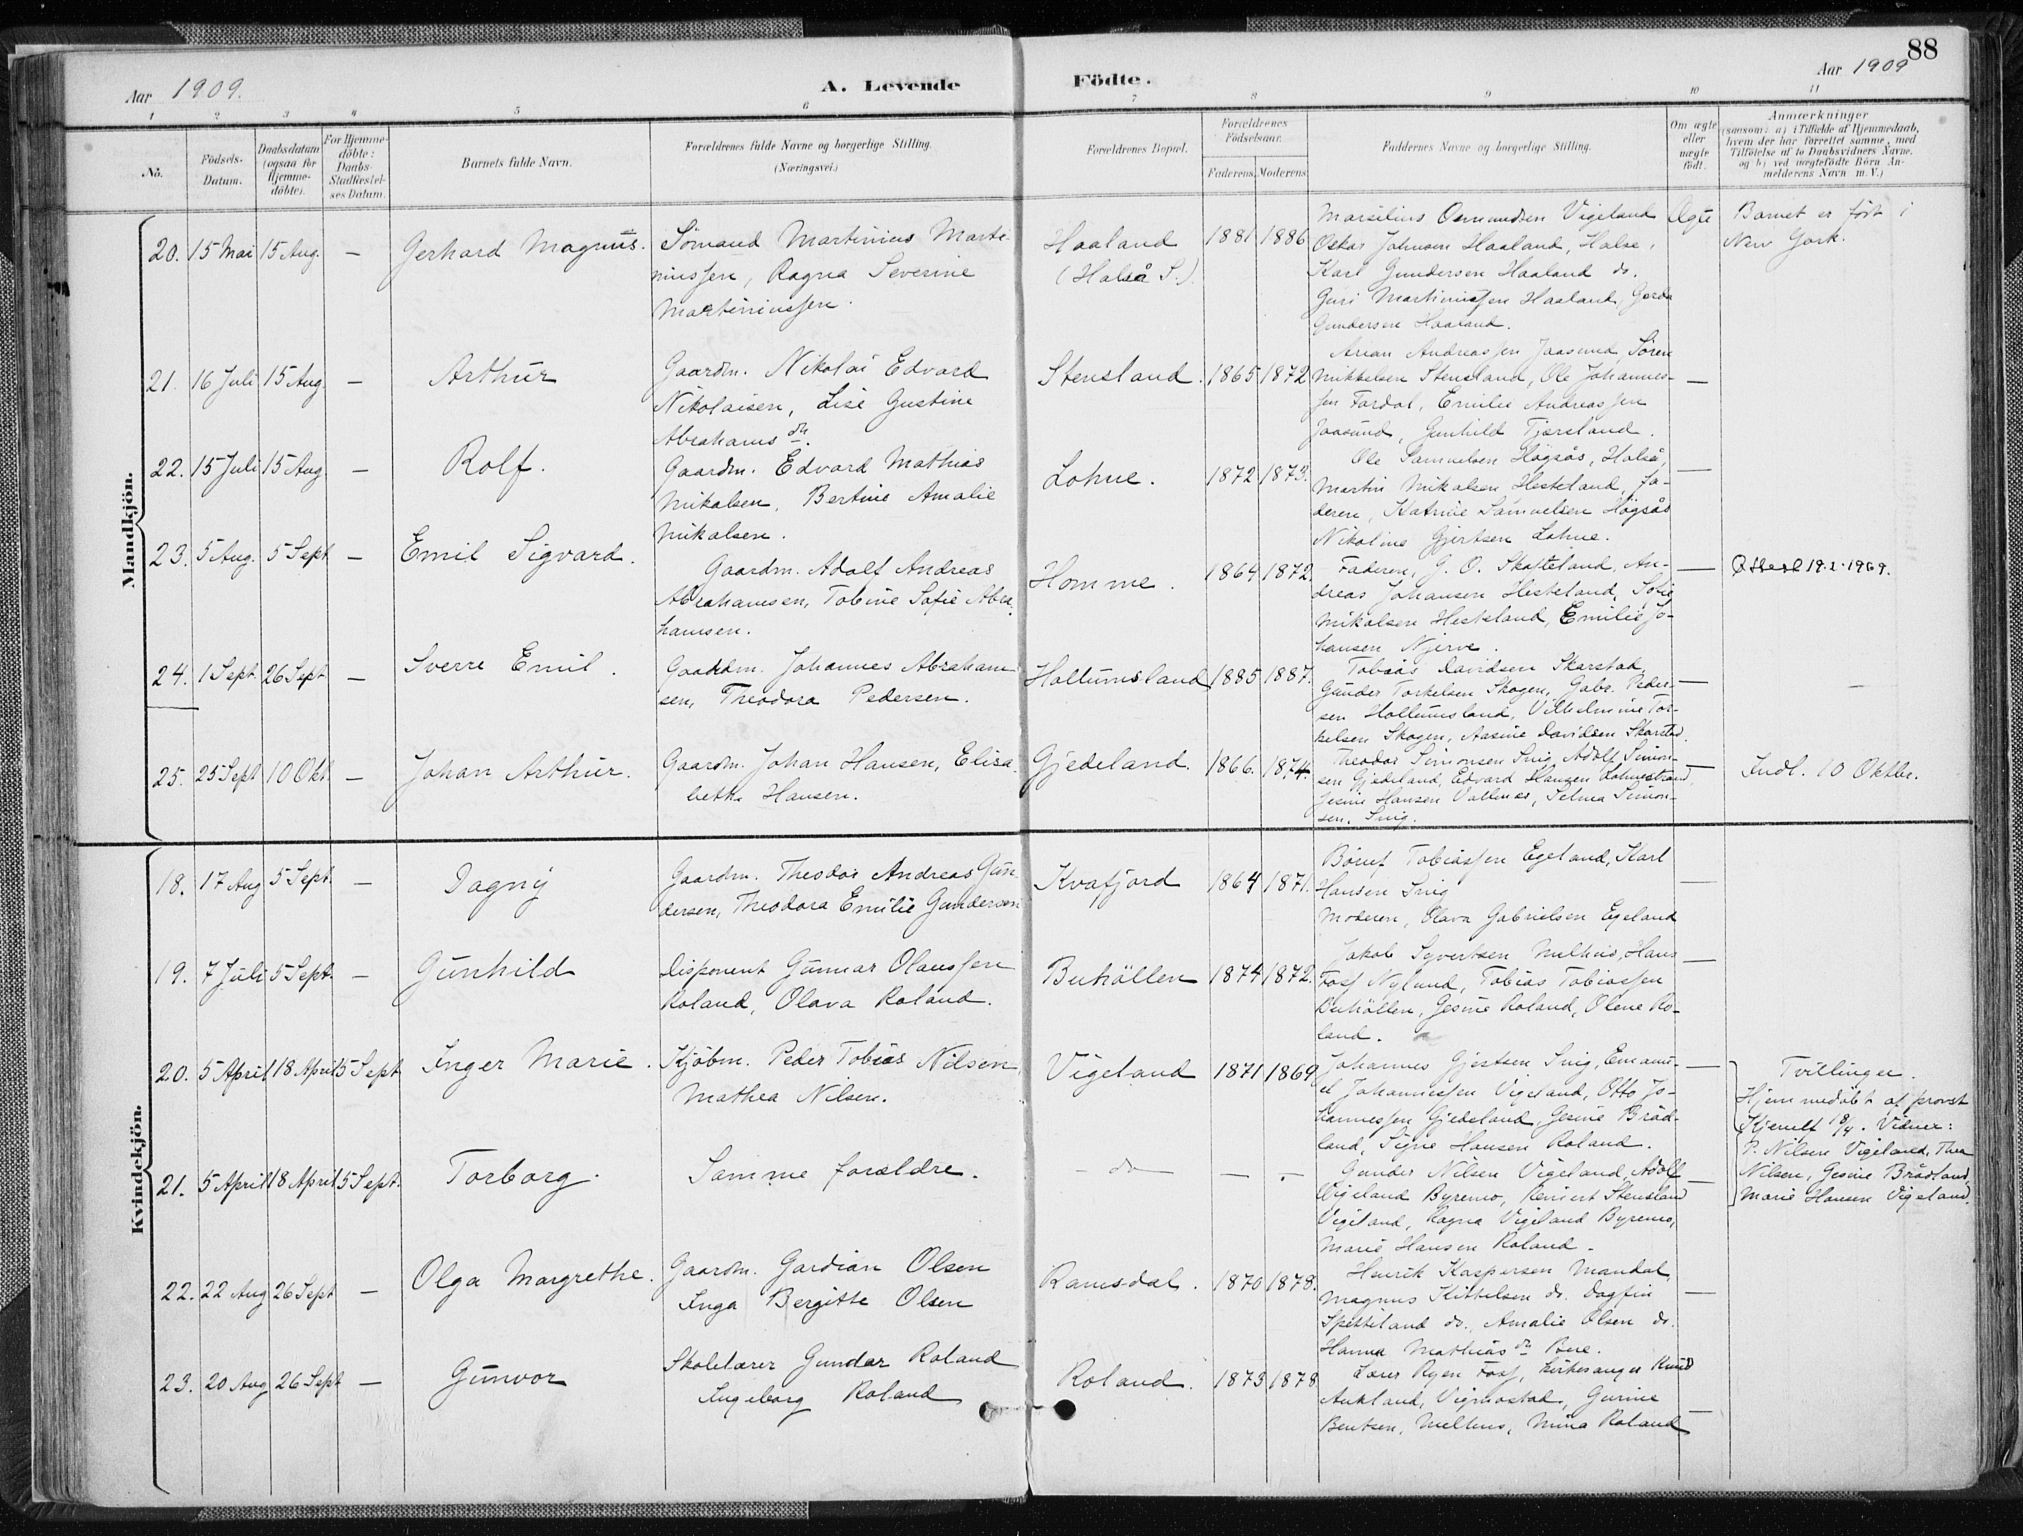 88
Aar 1909.
A. Levende
Födte.
Aar 1909
1 2 3 4 5 6 7 8 9 10 11
No.
Födsels-Datum.
Daabsdatum (ogsaa for Hjemme-döbte).
For Hjemme-döbte: Daabs-Stadfæstel-ses Datum.
Barnets fulde Navn.
Forældrenes fulde Navne og borgerlige Stilling.
(Næringsvei.)
Forældrenes Bopæl.
Forældrenes Födselsaar.
Faderens. Moderens.
Faddernes Navne og borgerlige Stilling.
Om ægte eller uægte födt.
Anmærkninger
(saasom: a) i Tilfælde af Hjemmedaab,
hvem der har forrettet samme, med
Tilföielse af to Daabsvidners Navne.
og b) ved uægtefödte Börn An-
melderens Navn m. V.)
Mandkjön.
20. 15 Mai 15 Aug. — Gerhard Magnus. Sömand Martinius Marti-
niussen, Ragna Severine
Martiniussen.
Haaland
(Halså S.)
1881 1886
Marsilius Osmundsen Vigeland
Oskar Johnsen Haaland, Halse,
Karl Gundersen Haaland do.
Guri Martiniussen Haaland, Gerda
Gundersen Haaland.
Ægte
Barnet er født i
New York.
21. 16 Juli 15 Aug. — Arthur
Gaardm. Nikolai Edvard
Nikolaisen, Lise Gustine
Abrahams dtr.
Stensland. 1865 1872
Arian Andreassen Jaasund, Sören
Mikkelsen Stensland, Ole Johannes-
sen Fardal, Emilie Andreassen
Jaasund, Gunhild Tjorsland.
—
22. 15 Juli 15 Aug. — Rolf.
Gaardm. Edvard Mathias
Mikalsen, Bertine Amalie
Mikalsen.
Lohne. 1872 1873.
Ole Samuelsen Högsås, Halså,
Martin Mikalsen Hesteland, Fa-
deren, Katrine Samuelsen Högsås
Nikoline Gjertsen Lohne.
—
23. 5 Aug. 5 Sept. — Emil Sigvard.
Gaardm. Adolf Andreas
Abrahamsen, Tobine Sofie Abra-
hamsen.
Homme. 1864 1872.
Faderen, G. O. Skatteland, An-
dreas Johansen Hesteland, Sofie
Mikalsen Hesteland, Emilie Jo-
hansen Njerve.
—
Attest 19.2.1969.
24. 1 Sept. 26 Sept. — Sverre Emil.
Gaardm. Johannes Abraham-
sen, Theodora Pedersen.
Hallumsland 1885 1887.
Tobias Davidsen Skarstad,
Gunder Torkelsen Skogen, Gabr. Peder-
sen Hollumsland, Vilhelmine Tor-
kelsen Skogen, Aasine Davidsen Skarstad.
—
25. 25 Sept 10 Okt. — Johan Arthur.
Gaardm. Johan Hansen, Elisa-
beth Hansen.
Gjedeland. 1866. 1874.
Theodor Simonsen Svig, Adolf Simon-
sen Gjedeland, Edvard Hansen Lohnestrand,
Jesine Hansen Valmer, Selma Simon-
sen, Svig.
—
Indl. 10 Oktbr.
Kvindekjön.
18. 17 Aug 5 Sept. — Dagny
Gaardm. Theodor Andreas Gun-
dersen, Theodora Emilie Gundersen
Kvafjord 1864 1871.
Börut Tobiassen Egeland, Karl
Hansen Svig
Moderen, Olava Gabrielsen Egeland
—
19. 7 Juli 5 Sept. — Gunhild
Disponent Gunnar Olaussen
Roland, Olava Roland.
Buhöllen 1874 1872.
Jakob Syvertsen Melhus, Hans
Foss Nylund, Tobias Tobiassen
Buhöllen, Gesine Roland, Olene Ro-
land.
—
20. 5 April 18 April 5 Sept Inger Marie.
Kjöbm. Peder Tobias Nilsen,
Mathea Nilsen.
Vigeland 1871 1869
Johannes Gjertsen Svig, Emanu-
el Johannessen Vigeland, Otto Jo-
hannessen Gjedeland, Gesine Bråd-
land, Signe Hansen Roland.
—
Tvillinger.
Hjemmedöbt af provst
Kjerulf 18/4. Vidner:
P. Nilsen Vigeland, Thea
Nilsen, Gesine Brådland,
Marie Hansen Vigeland.
21. 5 April 18 April 5 Sept. Torborg.
Samme forældre.
— do — — —
Gunder Nilsen Vigeland, Adolf
Vigeland Byremo, Reinert Stensland
Vigeland, Ragna Vigeland Byremo,
Marie Hansen Roland.
—
22. 22 Aug 26 Sept — Olga Margrethe.
Gaardm. Gardian Olsen
Inga Bergitte Olsen
Ramsdal. 1870 1878.
Henrik Kaspersen Mandal,
Magnus Kittelsen do. Dagfin
Spetteland do. Amalie Olsen do.
Hanna Mathias dtr Bue.
—
23. 20 Aug 26 Sept — Gunvor
Skolelærer Gunder Roland
Ingeborg Roland
Roland. 1873 1878
Lærer Ryen Foss, Kirkesanger Knud
Aukland, Vigmostad, Gurine
Bentsen, Melhus, Mina Roland
—